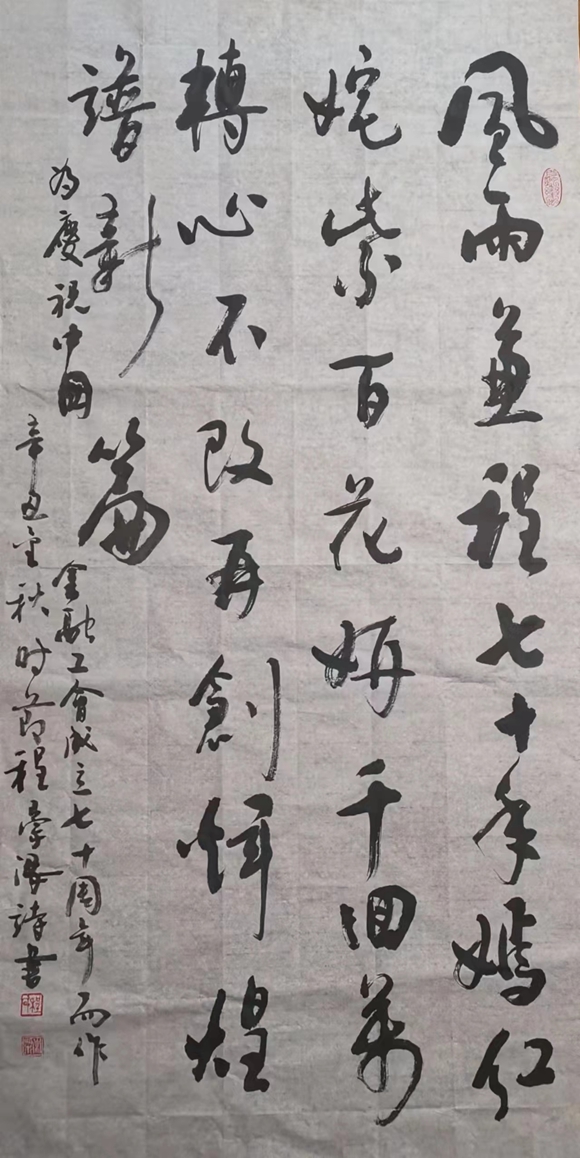 風雨兼程七十年嫣红
姹紫百花妍千回万
轉心不改再創輝煌
譜新篇
为慶祝中國
金融工會成立七十周年而作
辛丑金秋时節程學源詩書